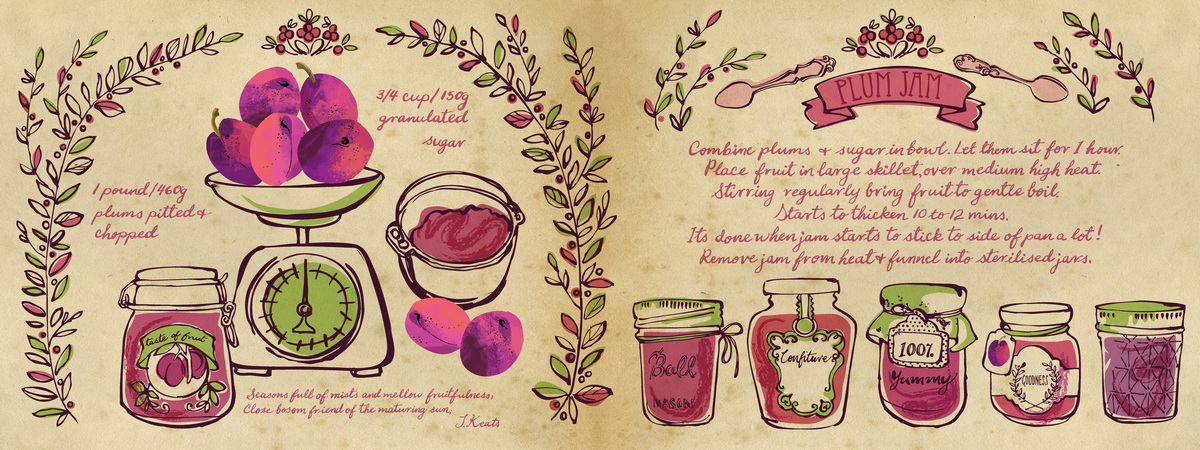 3/4 cup/150g
granulated
sugar
1 pound/460g
plums pitted &
chopped
taste of fruit
Seasons full of mists and mellow fruitfulness,
Close bosom friend of the maturing sun;
J. Keats
PLUM JAM
Combine plums & sugar in bowl. Let them sit for 1 hour.
Place fruit in large skillet, over medium high heat.
Stirring regularly bring fruit to gentle boil.
Starts to thicken 10 to 12 mins.
Its done when jam starts to stick to side of pan a lot!
Remove jam from heat & funnel into sterilised jars.
Ball
MASON
Confiture
100%
Yummy
GOODNESS